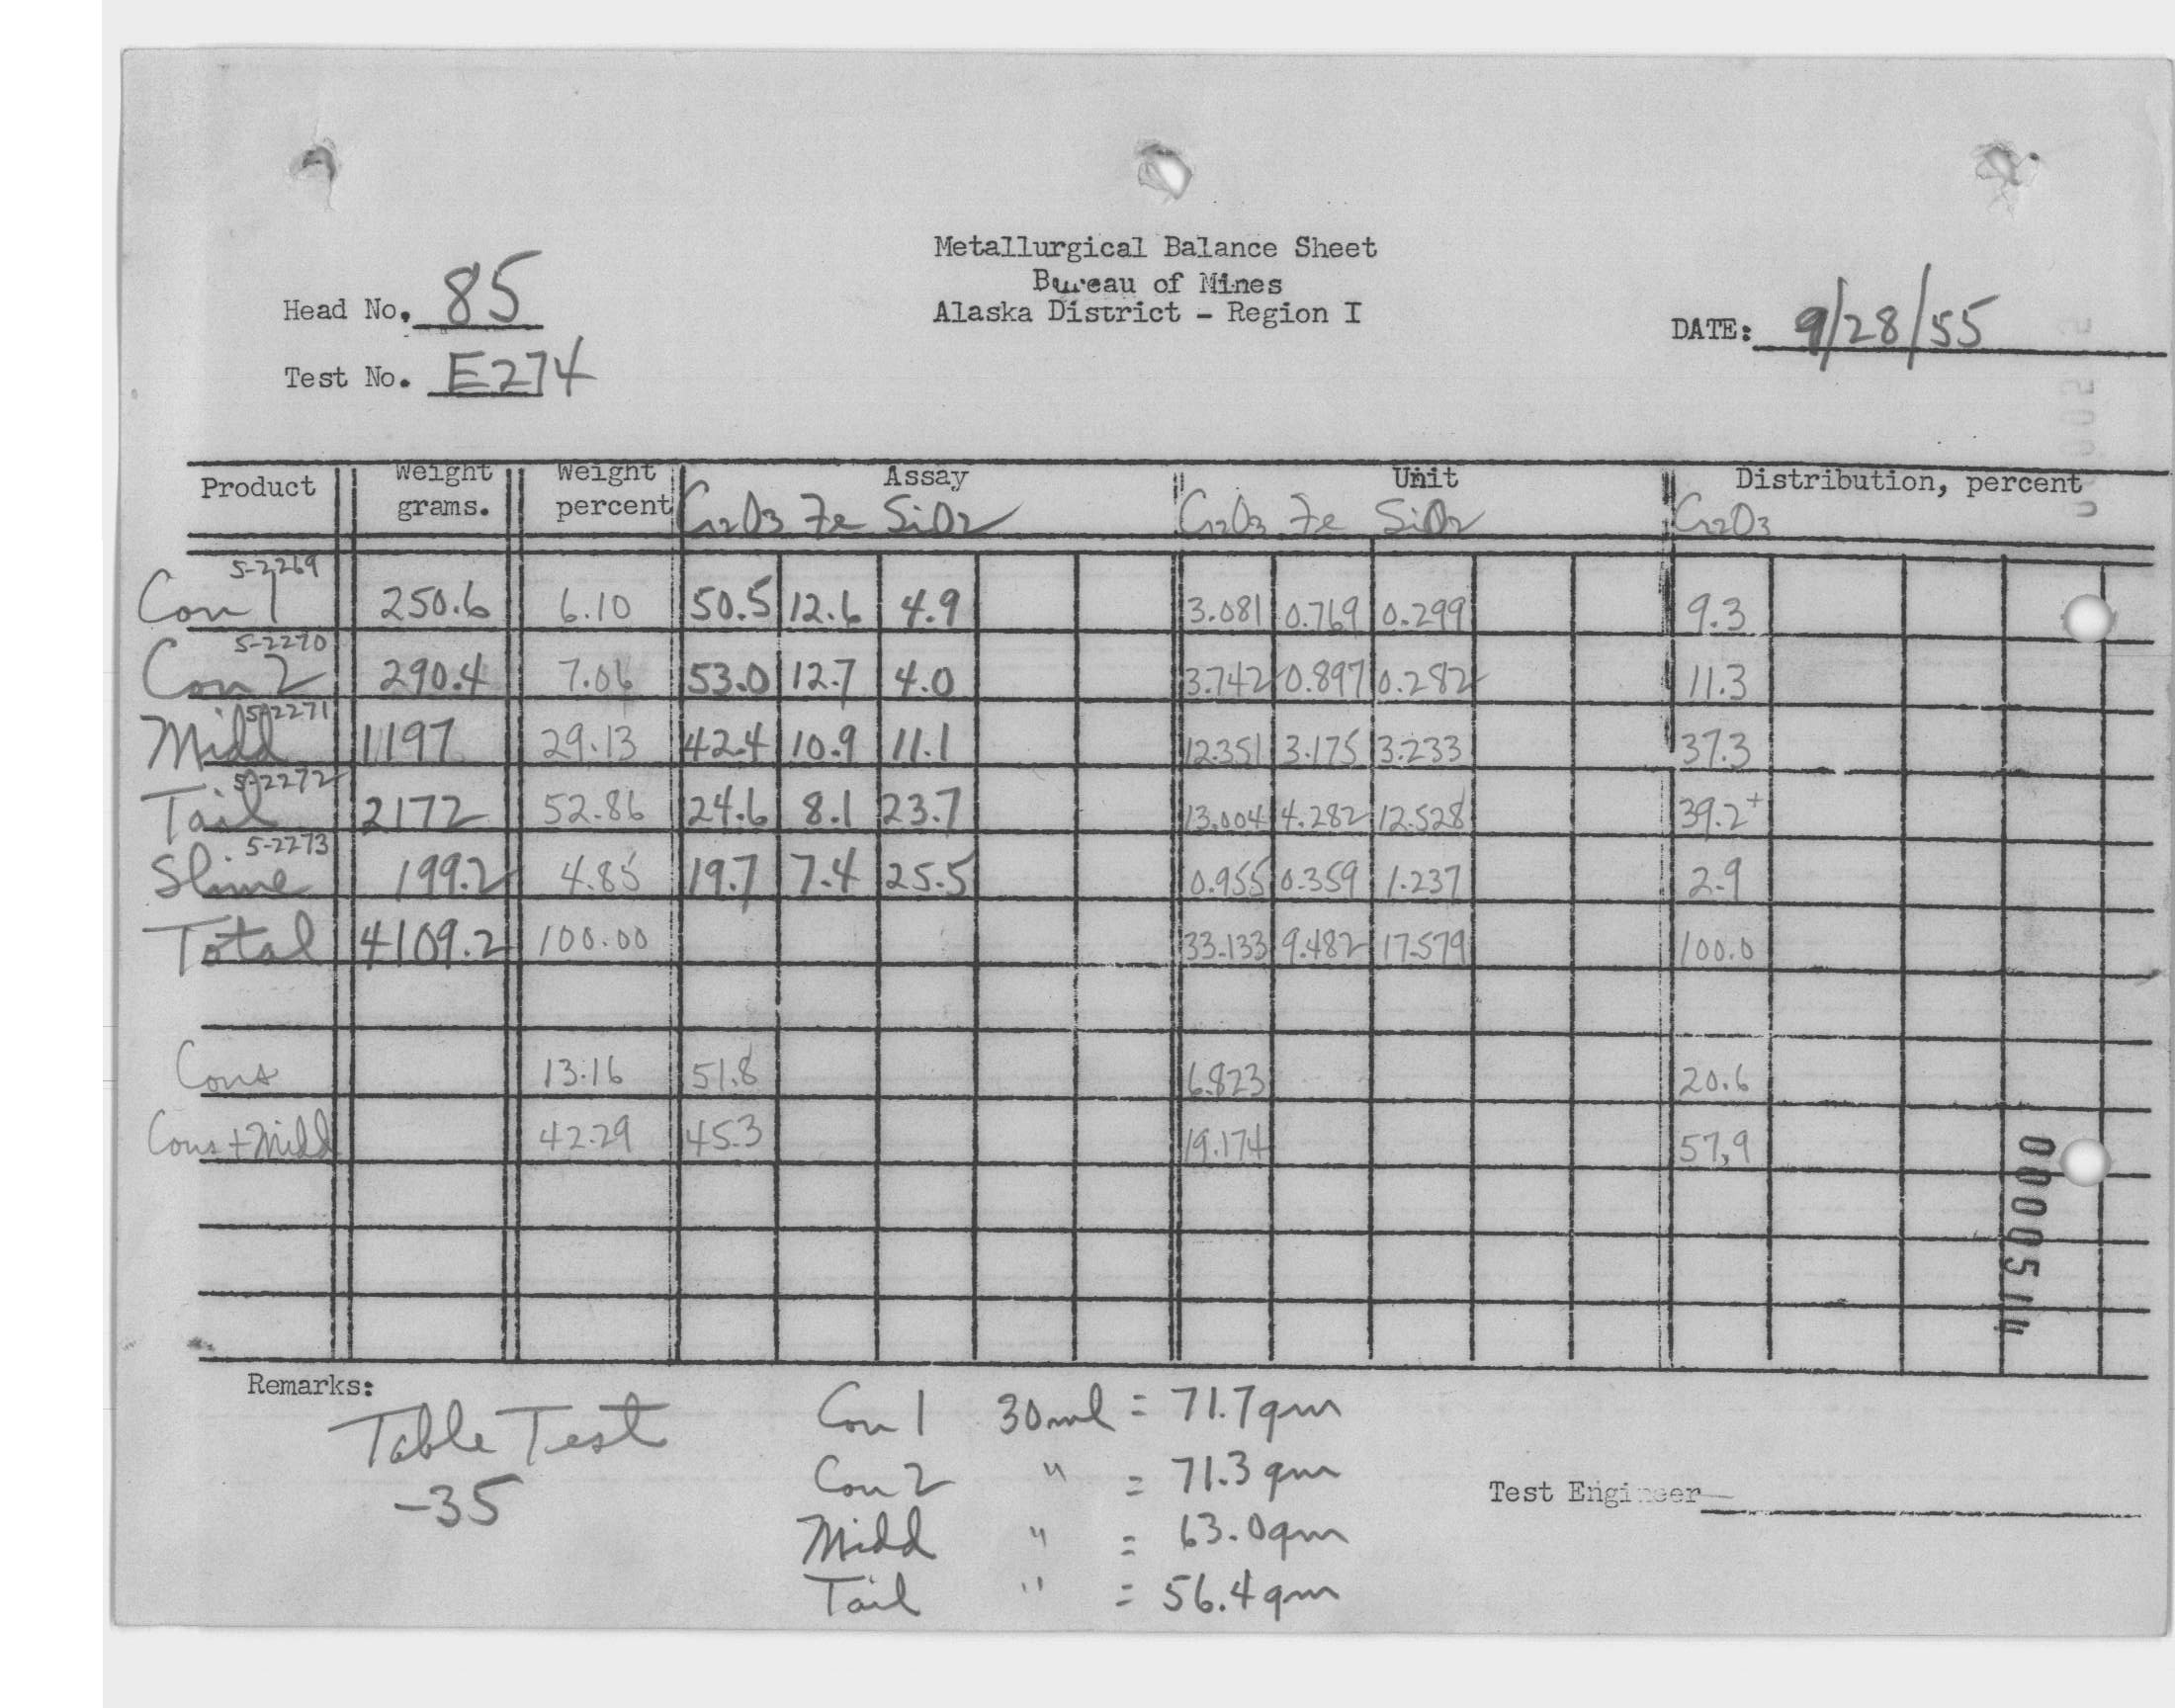 Metallurgical Balance Sheet
Bureau of Mines
Alaska District - Region I
Head No. 85
Test No. E274
DATE: 9/28/55
Product Weight grams. Weight percent Assay Unit Distribution, percent
Cr2O3 Fe SiO2 Cr2O3 Fe SiO2 Cr2O3
5-2269
Con 1 250.6 6.10 50.5 12.6 4.9 3.081 0.769 0.299 9.3
5-2270
Con 2 290.4 7.06 53.0 12.7 4.0 3.742 0.897 0.282 11.3
5-2271
Midd 1197 29.13 42.4 10.9 11.1 12.351 3.175 3.233 37.3
5-2272
Tail 2172 52.86 24.6 8.1 23.7 13.004 4.282 12.528 39.2+
5-2273
Slime 199.2 4.85 19.7 7.4 25.5 0.955 0.359 1.237 2.9
Total 4109.2 100.00 33.133 9.482 17.579 100.0
Cons 13.16 51.8 6.823 20.6
Cons + Midd 42.29 45.3 19.174 57.9
Remarks:
Table Test
-35
Con 1 30 ml = 71.7 gm
Con 2 " = 71.3 gm
Midd " = 63.0 gm
Tail " = 56.4 gm
Test Engineer